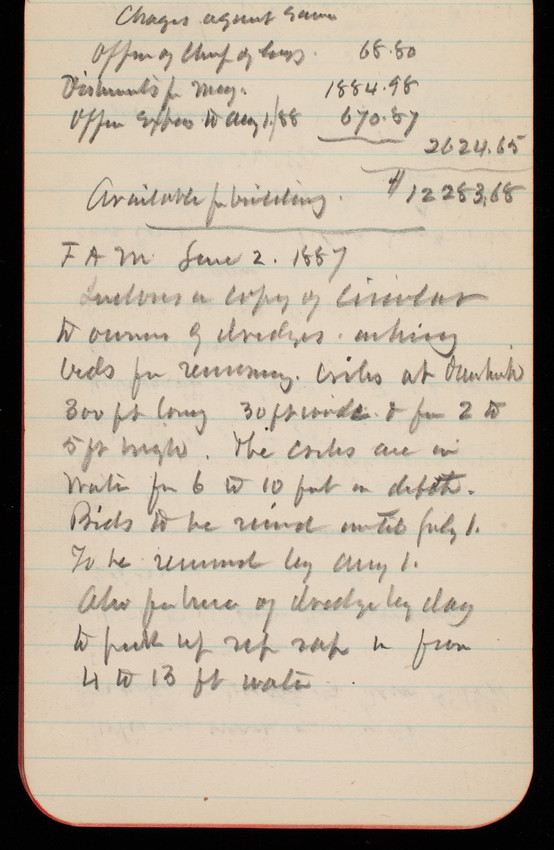 Charges against same
Office of Chief of Engs. 68.80
Disbursmts for May. 1884.98
Office Expens to Aug 1/88 670.87
2624.65
Available for building. $12283,68
F A M June 2. 1887
Encloses a copy of circular
to owners of dredges. asking
bids for removing. cribs at Dunkirk
300 ft long 30 ft wide & fm 2 to
5 ft high. The cribs are in
water fm 6 to 10 feet in depth.
Bids to be recived until July 1.
To be removed by Aug 1.
Also for hire of dredge by day
to pick up rip rap in from
4 to 13 ft water